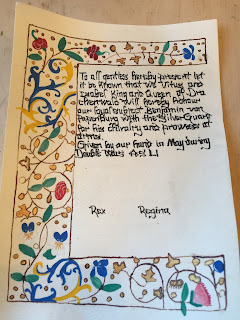 To all gentles hereby present let
it be known that we Vitus and
Isabel King and Queen of Dra
chenwald will hereby honour
our loyal subject Benjamin von
Papenburg with the Silver Guard
for his chivalry and prowess at
arms.
Given by our hand in May during
Double Wars AS LI
Rex Regina